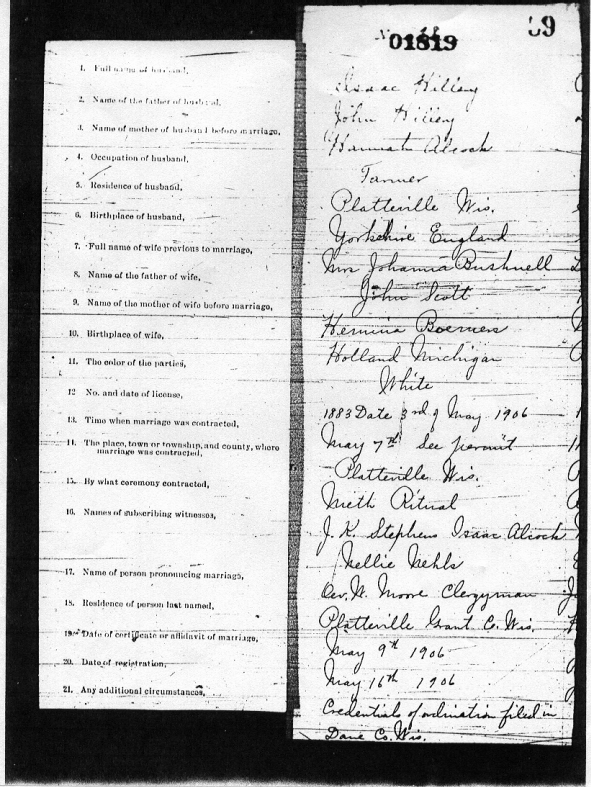 01819
39
1. Full name of husband,
Isaac Hillery
2. Name of the father of husband,
John Hillery
3. Name of mother of husband before marriage,
Hannah Alcock
4. Occupation of husband,
Farmer
5. Residence of husband,
Platteville Wis.
6. Birthplace of husband,
Yorkshire England
7. Full name of wife previous to marriage,
Mrs Johanna Bushnell
8. Name of the father of wife,
John Scott
9. Name of the mother of wife before marriage,
Hermina Boemers
10. Birthplace of wife,
Holland Michigan
11. The color of the parties,
White
12 No. and date of license,
1883 Date 3rd of May 1906
13. Time when marriage was contracted,
May 7th See permit
14. The place, town or township, and county, where
marriage was contracted,
Platteville Wis.
15. By what ceremony contracted,
Meth Ritual
16. Names of subscribing witnesses,
J. K. Stephens Isaac Alcock
Nellie Nehls
17. Name of person pronouncing marriage,
Rev. W. Moore Clergyman
18. Residence of person last named,
Platteville Grant Co. Wis.
19. Date of certificate or affidavit of marriage,
May 9th 1906
20. Date of registration,
May 16th 1906
21. Any additional circumstances,
Credentials of ordination filed in
Dane Co. Wis.